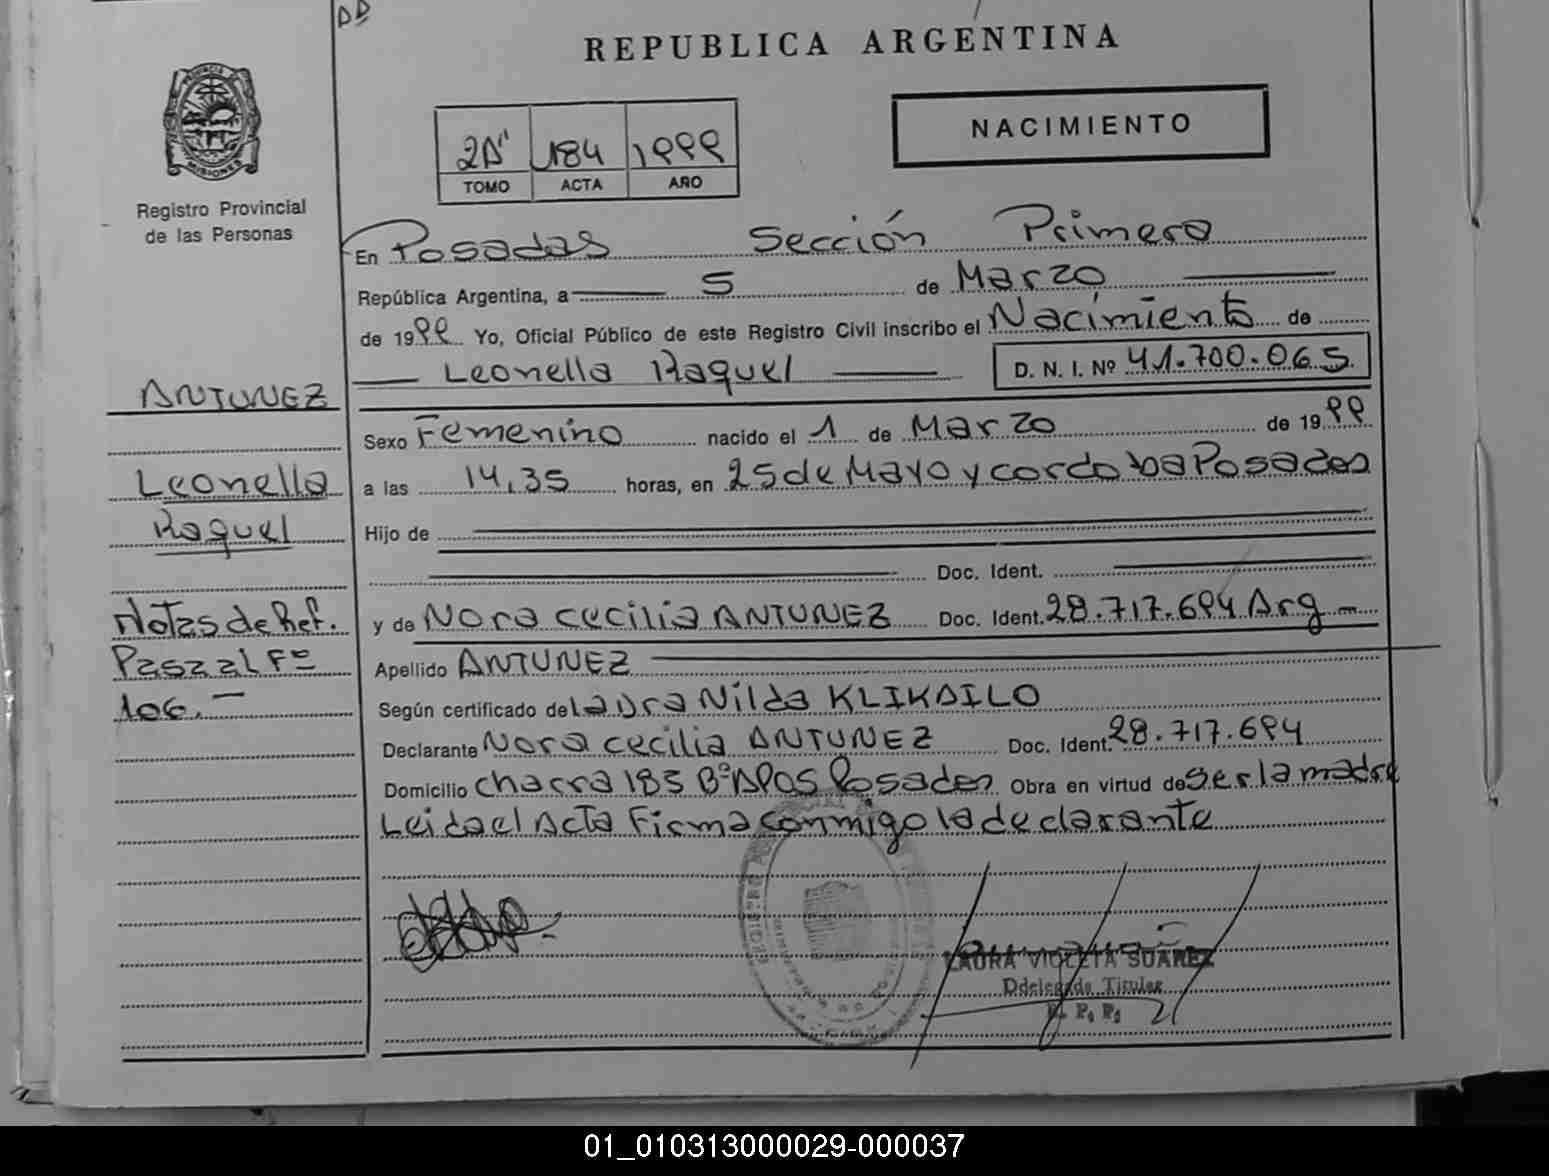 REPUBLICA ARGENTINA
NACIMIENTO
184 1999
TOMO ACTA AÑO
Registro Provincial
de las Personas
En Posadas Sección Primera
República Argentina, a 5 de Marzo
de 1999 Yo, Oficial Público de este Registro Civil inscribo el Nacimiento de
Leonella Raquel D. N. I. Nº 41.700.065
ANTUNEZ
Sexo Femenino nacido el 1 de Marzo de 1999
Leonella
a las 14,35 horas, en 25 de Mayo y cordoba Posadas
Raquel
Hijo de
Doc. Ident.
Notas de Ref.
y de Nora cecilia ANTUNEZ Doc. Ident. 28.717.694 Arg
Pasa al Fº
Apellido ANTUNEZ
106.-
Según certificado de la Dra Nilda KLIKAILO
Declarante Nora cecilia ANTUNEZ Doc. Ident. 28.717.694
Domicilio chacra 183 Bº APOS Posadas Obra en virtud de ser la madre
Leida el Acta Firma conmigo la declarante
LAURA VIOLETA SUAREZ
Ddelegado Titular
R. P. P.
01_010313000029-000037